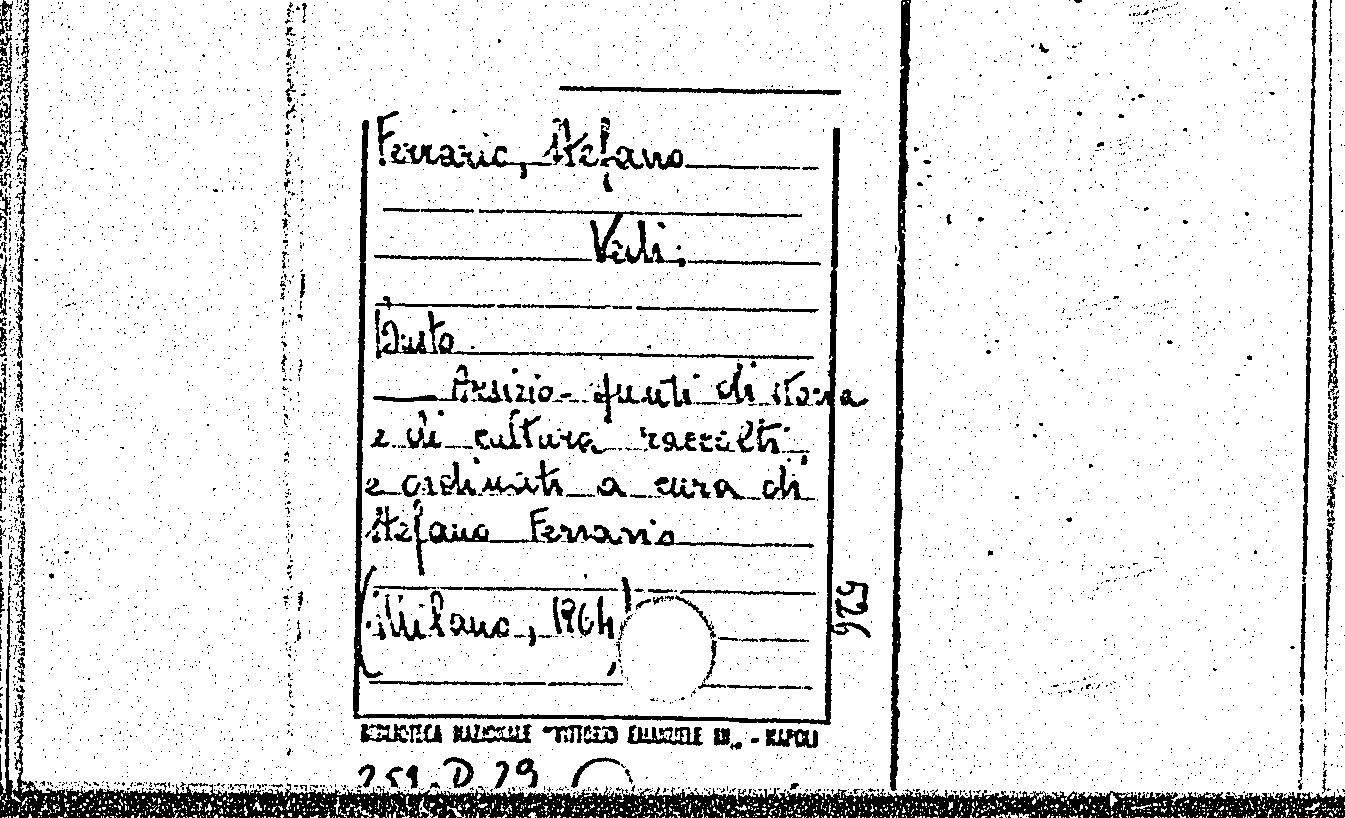 Ferrario, Stefano
Vedi:
Busto
Arsizio - punti di storia
e di cultura raccolti,
e ordinati a cura di
Stefano Ferrario
(Milano, 1964)
526
BIBLIOTECA NAZIONALE "VITTORIO EMANUELE III" - NAPOLI
251. D 29